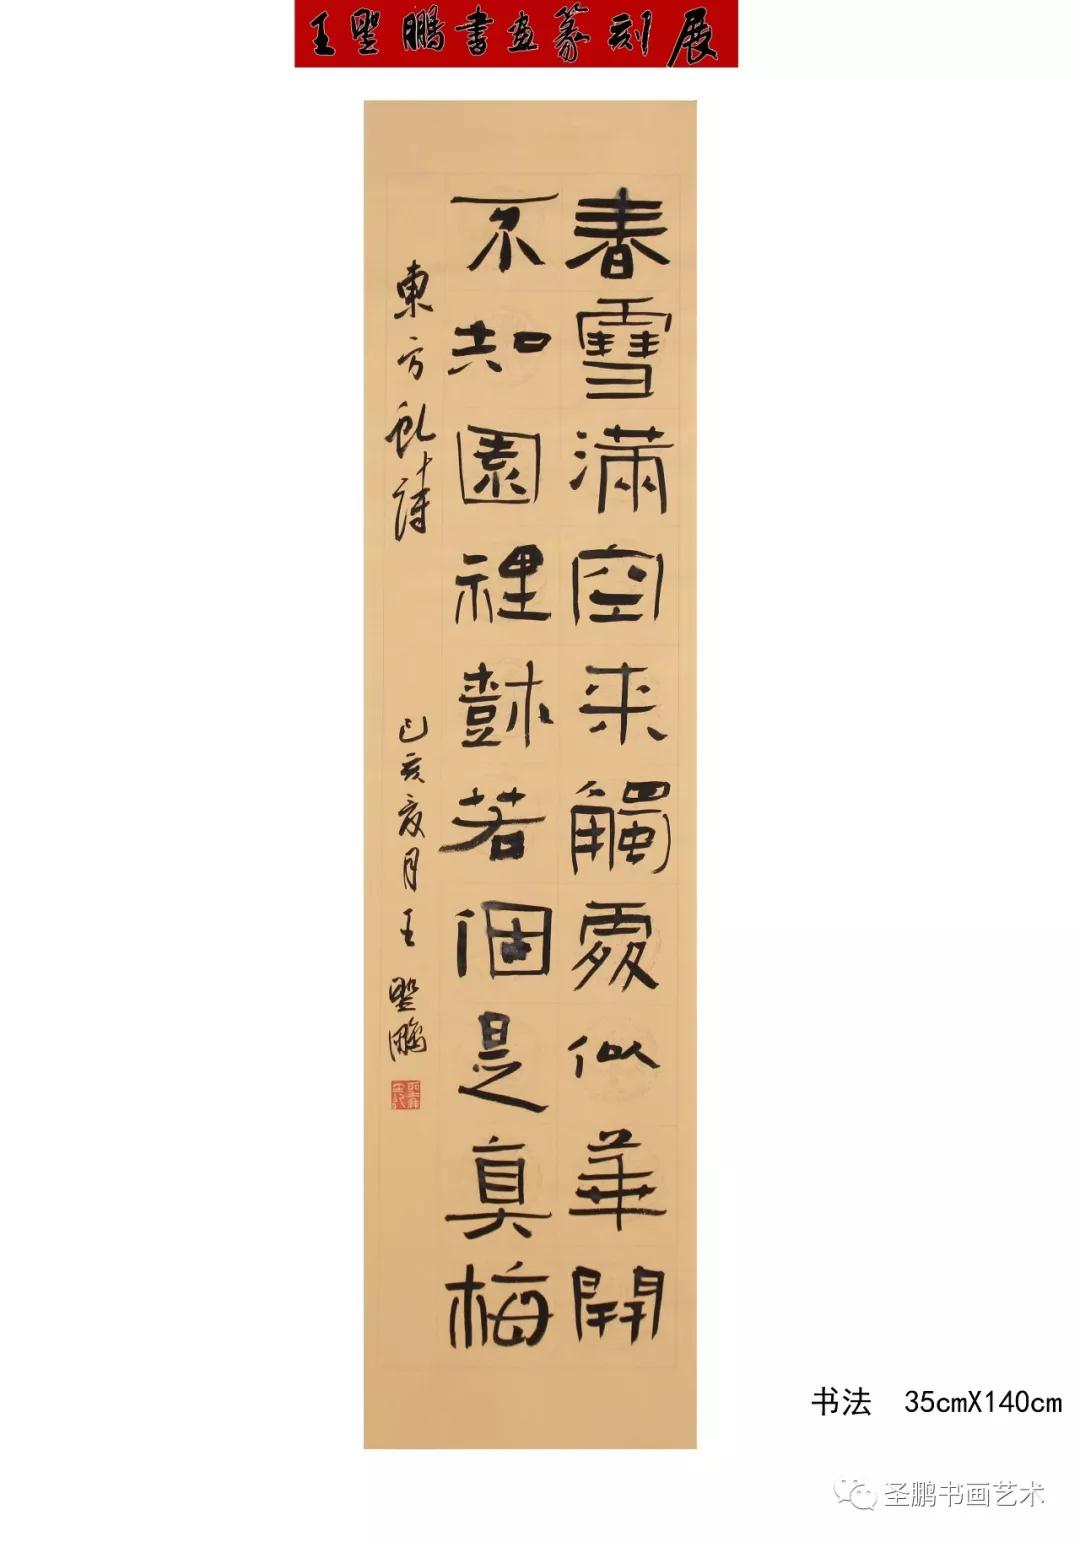 王聖鵬書画篆刻展
春雪滿空来觸處似華開
不知園裡樹若個是真梅
東方虬詩
己亥夏月王聖鵬
书法 35cmX140cm
圣鹏书画艺术